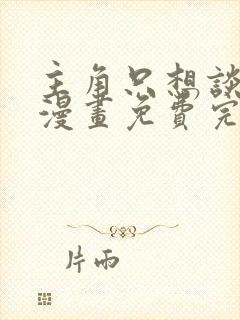 主角只想談
漫畫免費完
片雨